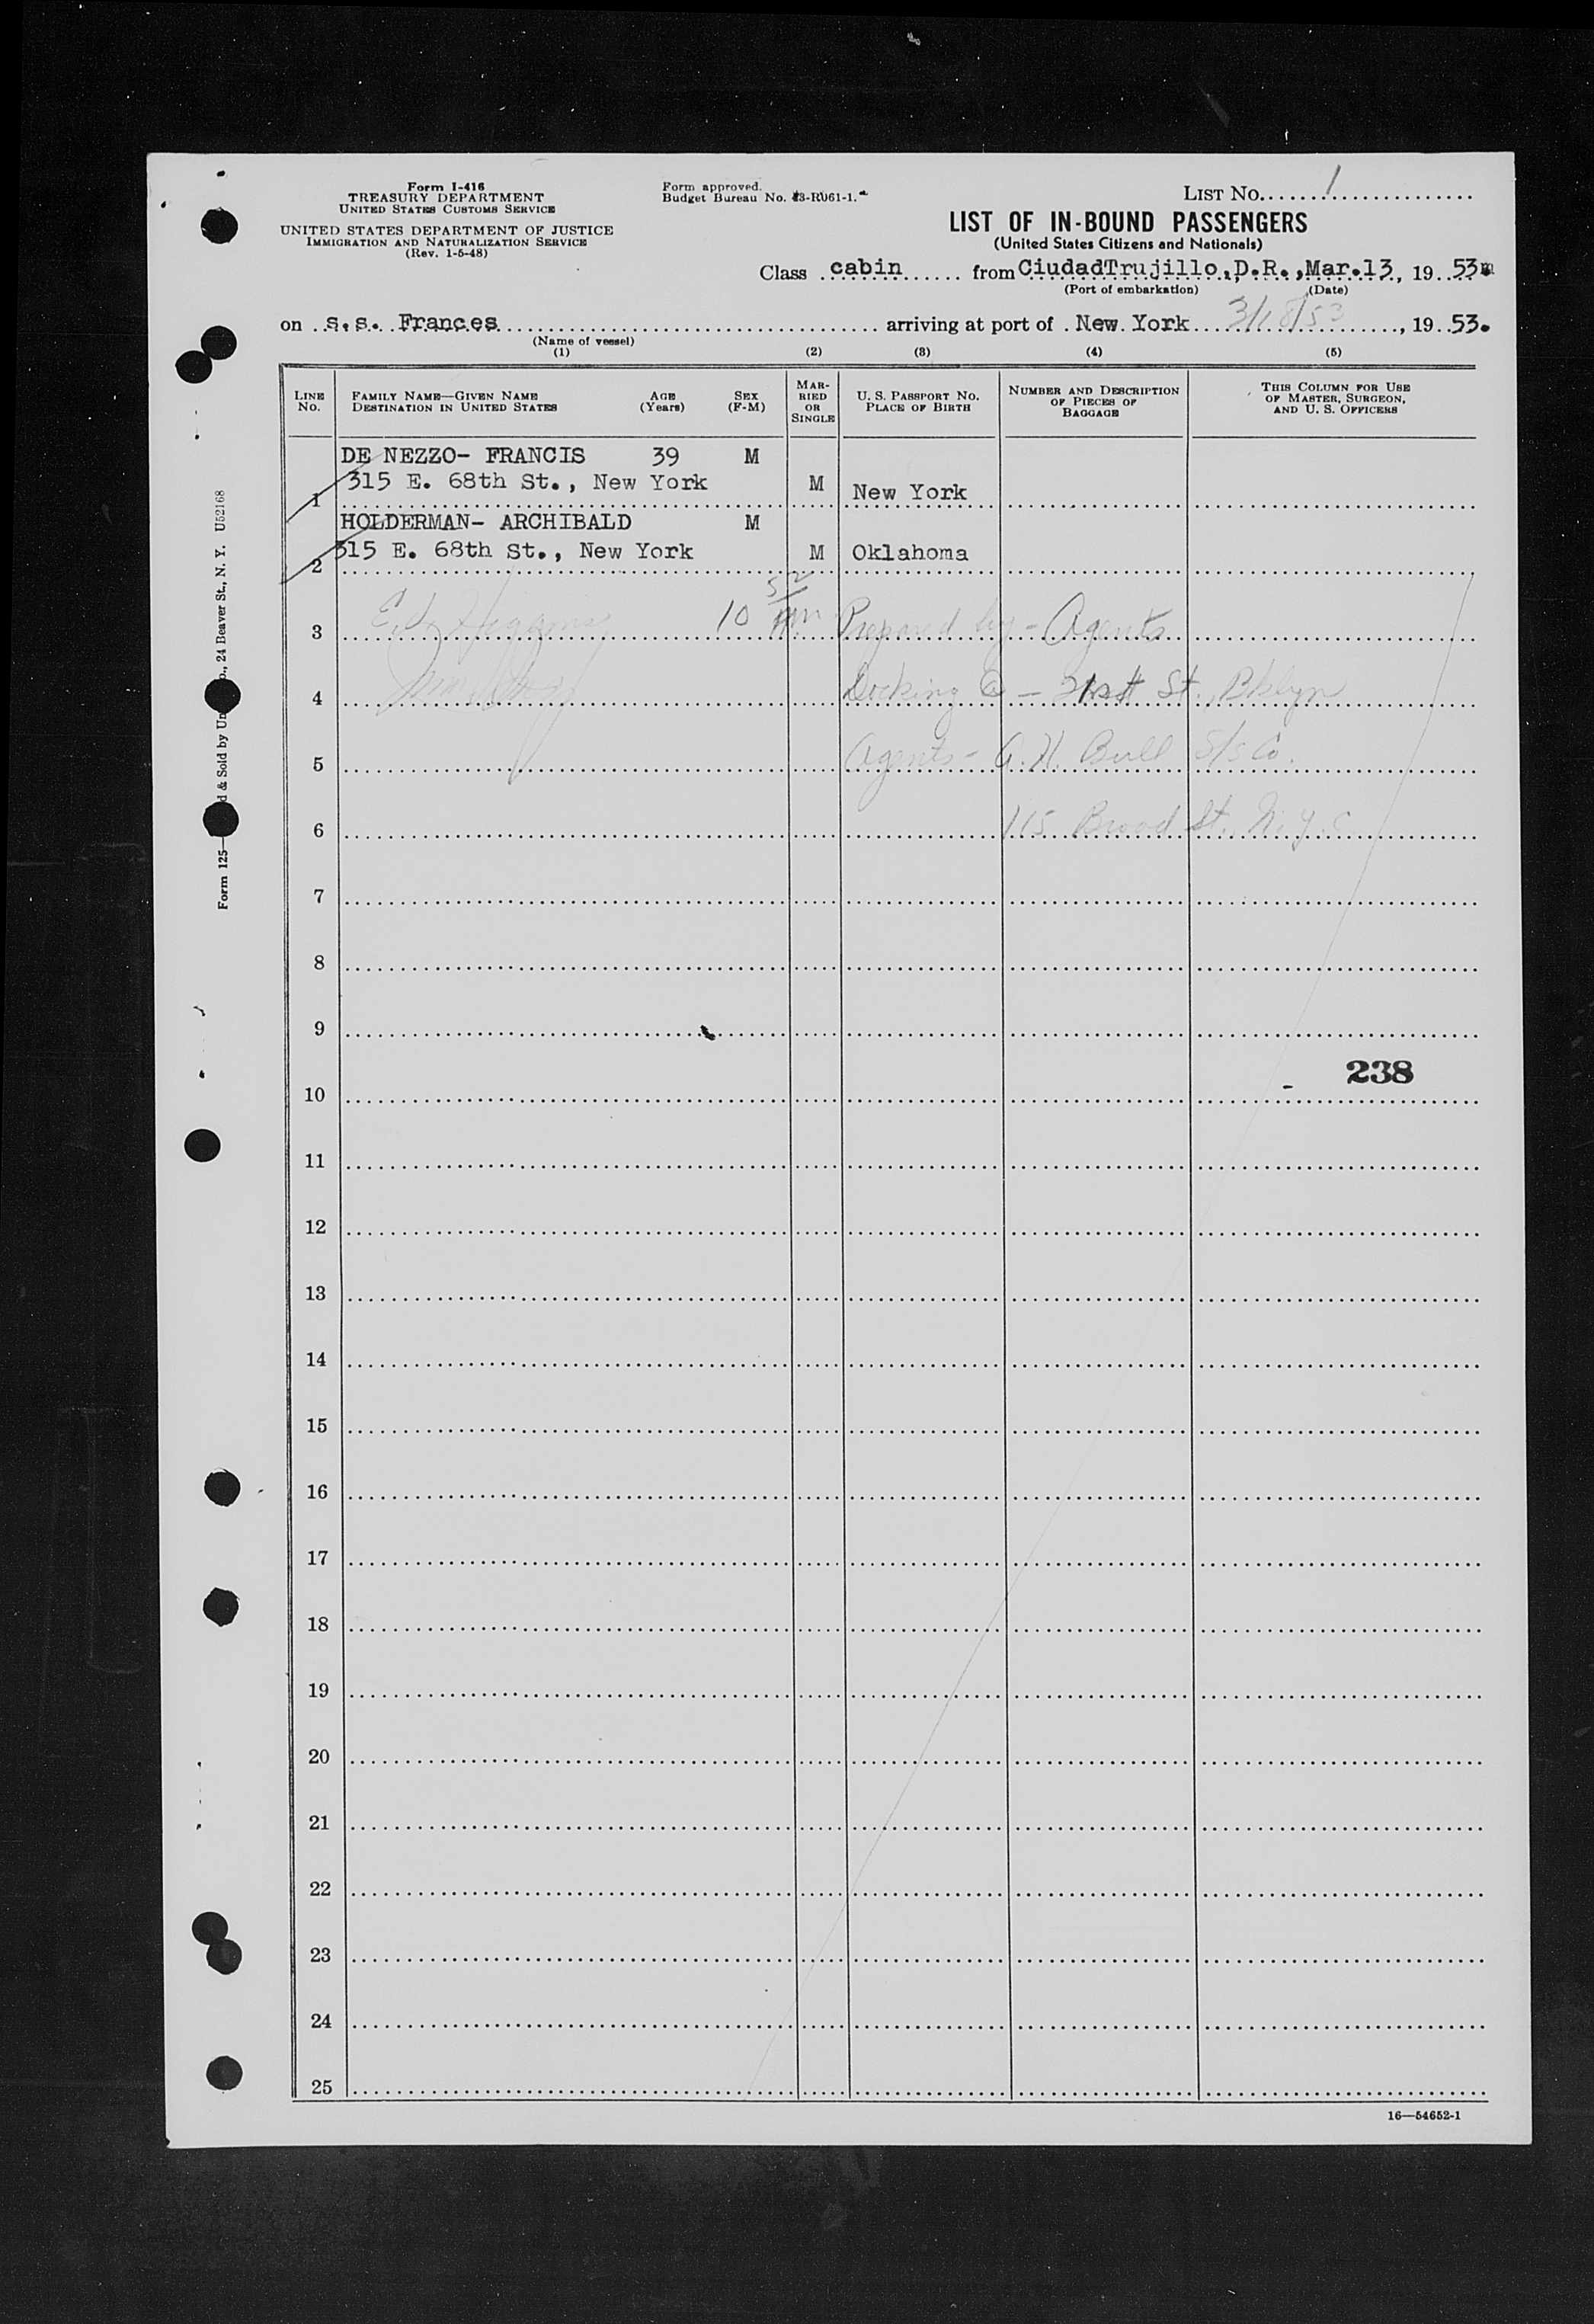 Form I-416
TREASURY DEPARTMENT
UNITED STATES CUSTOMS SERVICE
UNITED STATES DEPARTMENT OF JUSTICE
IMMIGRATION AND NATURALIZATION SERVICE
(Rev. 1-5-48)
Form approved.
Budget Bureau No. 43-R061-1.
LIST No. 1
LIST OF IN-BOUND PASSENGERS
(United States Citizens and Nationals)
Class cabin from CiudadTrujillo, D.R., Mar.13, 19 53
(Port of embarkation) (Date)
on s.s. Frances arriving at port of New York 3/18/53, 19 53.
(Name of vessel)
(1) (2) (3) (4) (5)
LINE No. FAMILY NAME—GIVEN NAME DESTINATION IN UNITED STATES AGE (Years) SEX (F-M) MARRIED OR SINGLE U. S. PASSPORT NO. PLACE OF BIRTH NUMBER AND DESCRIPTION OF PIECES OF BAGGAGE THIS COLUMN FOR USE OF MASTER, SURGEON, AND U. S. OFFICERS
DE NEZZO- FRANCIS 39 M
1 315 E. 68th St., New York M New York
HOLDERMAN- ARCHIBALD M
2 315 E. 68th St., New York M Oklahoma
3 10 Prepared by - Agents
4 Docking @ - 21st St., Bklyn
5 Agents - A.H. Bull S/S Co.
6 115 Broad St. N.Y.C.
7
8
9
238
10
11
12
13
14
15
16
17
18
19
20
21
22
23
24
25
16—54652-1
Form 125— d & Sold by Un o., 24 Beaver St., N. Y. U52168